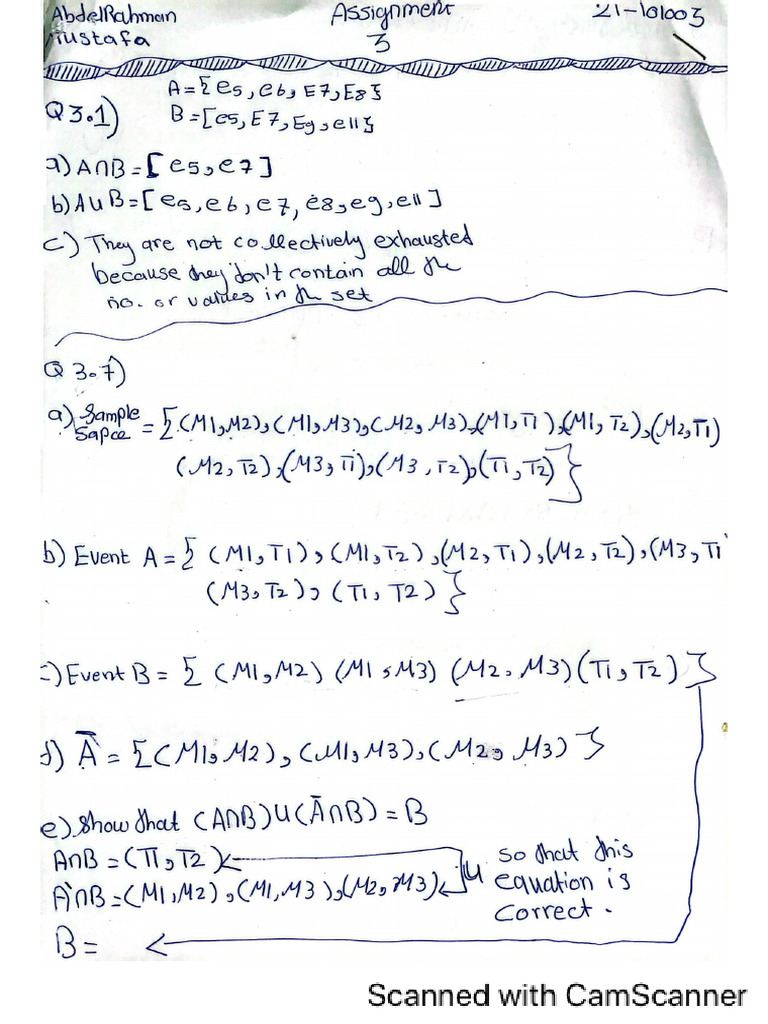 AbdelRahman Assignment 21-101003
Mustafa 3
A={E5, E6, E7, E8}
Q3.1) B=[E5, E7, E9, E11}
a) A∩B=[E5, E7]
b) A∪B=[E5, E6, E7, E8, E9, E11]
c) They are not collectively exhausted
because they don't contain all the
no. or values in the set
Q 3.7)
a) Sample
Sapce = {(M1,M2), (M1,M3), (M2,M3), (M1,T1), (M1,T2), (M2,T1)
(M2,T2), (M3,T1), (M3,T2), (T1,T2)}
b) Event A = { (M1,T1), (M1,T2), (M2,T1), (M2,T2), (M3,T1
(M3,T2), (T1,T2) }
c) Event B = { (M1,M2) (M1,M3) (M2,M3) (T1,T2) }
d) Ā = {(M1,M2), (M1,M3), (M2,M3) }
e) Show that (A∩B)∪(Ā∩B) = B
A∩B = (T1,T2)
A`∩B = (M1,M2), (M1,M3), (M2,M3) ∪
B =
so that this
equation is
correct.
Scanned with CamScanner